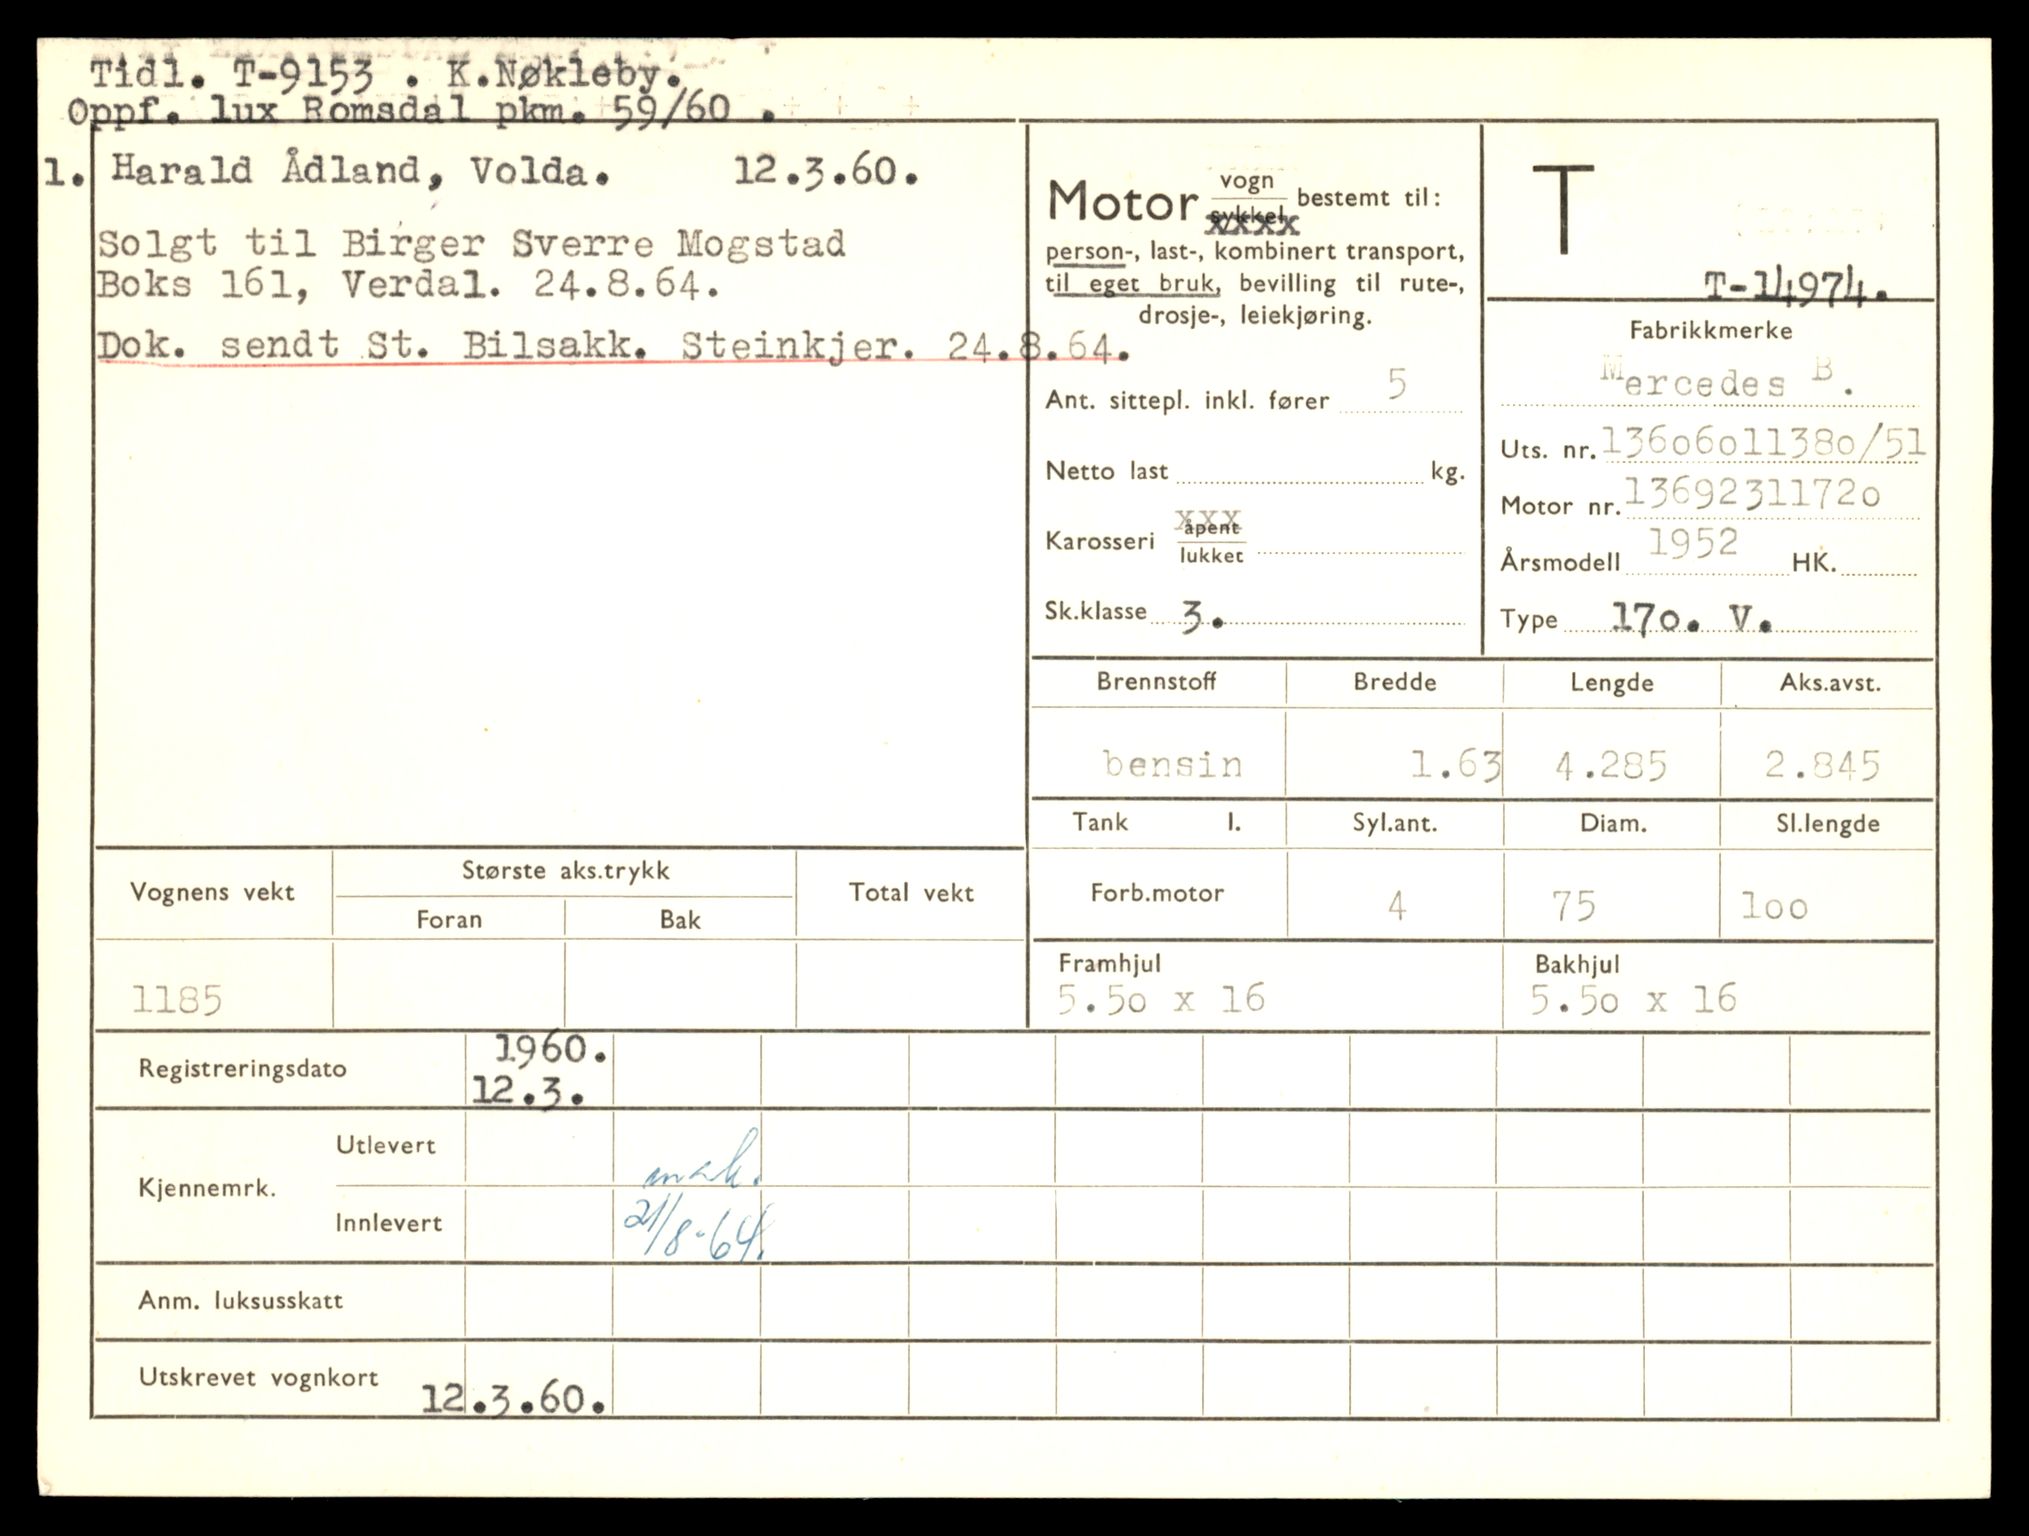 Tidl. T-9153 . K.Nøkleby.
Oppf. lux Romsdal pkm. 59/60 .
1. Harald Ådland, Volda. 12.3.60.
Solgt til Birger Sverre Mogstad
Boks 161, Verdal. 24.8.64.
Dok. sendt St. Bilsakk. Steinkjer. 24.8.64.
Motor vogn sykkel bestemt til:
person-, last-, kombinert transport,
til eget bruk, bevilling til rute-,
drosje-, leiekjøring.
Ant. sittepl. inkl. fører 5
Netto last kg.
Karosseri åpent lukket
Sk.klasse 3.
T
T-14974.
Fabrikkmerke
Mercedes B.
Uts. nr. 13606011380/51
Motor nr. 13692311720
Årsmodell 1952 HK.
Type 170. V.
Brennstoff Bredde Lengde Aks.avst.
bensin 1.63 4.285 2.845
Tank l. Syl.ant. Diam. Sl.lengde
Forb.motor 4 75 100
Framhjul Bakhjul
5.50 x 16 5.50 x 16
Vognens vekt Største aks.trykk Total vekt
Foran Bak
1185
Registreringsdato 1960.
12.3.
Kjennemrk. Utlevert mak.
Innlevert 21/8-64.
Anm. luksusskatt
Utskrevet vognkort 12.3.60.